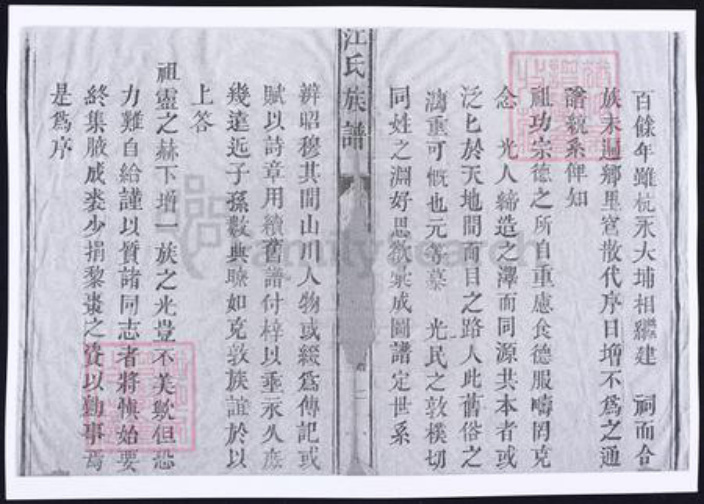 百餘年雖杭永大埔相繼建　祠而合
族未週鄉里窵散代序日增不為之通
譜統系俾知
祖功宗德之所自重慮食德服疇罔克
念　光人締造之澤而同源共本者或
泛匕於天地間而目之路人此舊俗之
澆重可慨也元等慕　光民之敦樸切
同姓之淵好思欲彙成圖譜定世系
江氏族譜
辨昭穆其間山川人物或綴為傳記或
賦以詩章用續舊譜付梓以垂永久庶
幾遠近子孫數典瞭如克敦族誼於以
上答
祖靈之赫下增一族之光豈不美歟但恐
力難自給謹以質諸同志者將慎始要
終集腋成裘少捐黎棗之資以勷事焉
是為序
FamilySearch